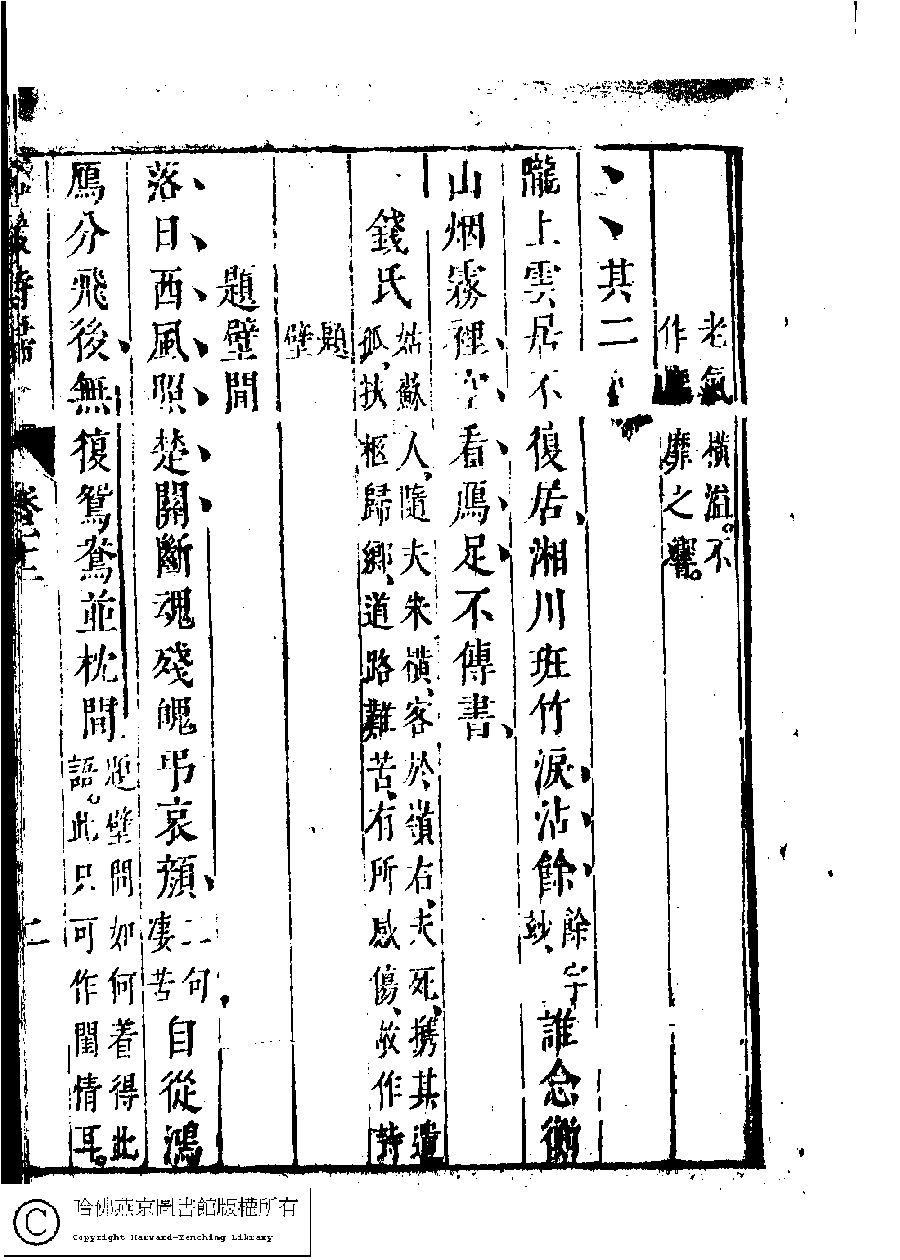 老氣橫溢。不
作靡之響。
其二
隴上雲居不復居、湘川班竹淚沾餘、餘字
妙、誰念衡
山烟霧裡、空看鴈足不傳書、
錢氏 姑蘇人、隨夫來橫、客於嶺右、夫死、携其遺
孤、扶柩歸鄉、道路難苦、有所感傷、故作詩
題
壁
題壁間
落日西風照楚關斷魂殘魄弔哀顏、二句
凄苦自從鴻
鴈分飛後、無復鴛鴦並枕間題壁間如何着得此
語。此只可作閨情耳。
卷之十二
二
哈佛燕京圖書館版權所有
Copyright Harvard-Yenching Library